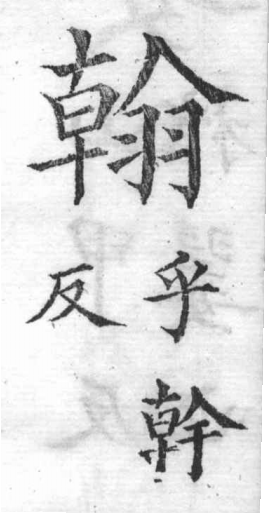 翰
乎幹
反